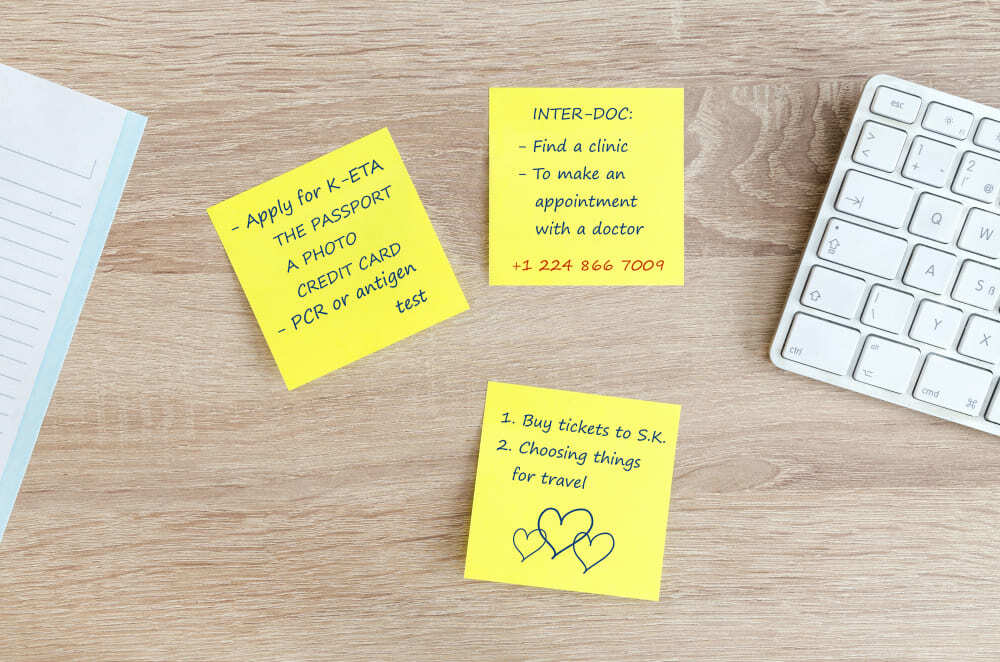 - Apply for K-ETA
THE PASSPORT
A PHOTO
CREDIT CARD
- PCR or antigen
test
INTER-DOC:
- Find a clinic
- To make an
appointment
with a doctor
+1 224 866 7009
1. Buy tickets to S.K.
2. Choosing things
for travel
esc
> <
1 + -
2 @
Q
W
A
S ß
Y
X
ctrl
alt
cmd